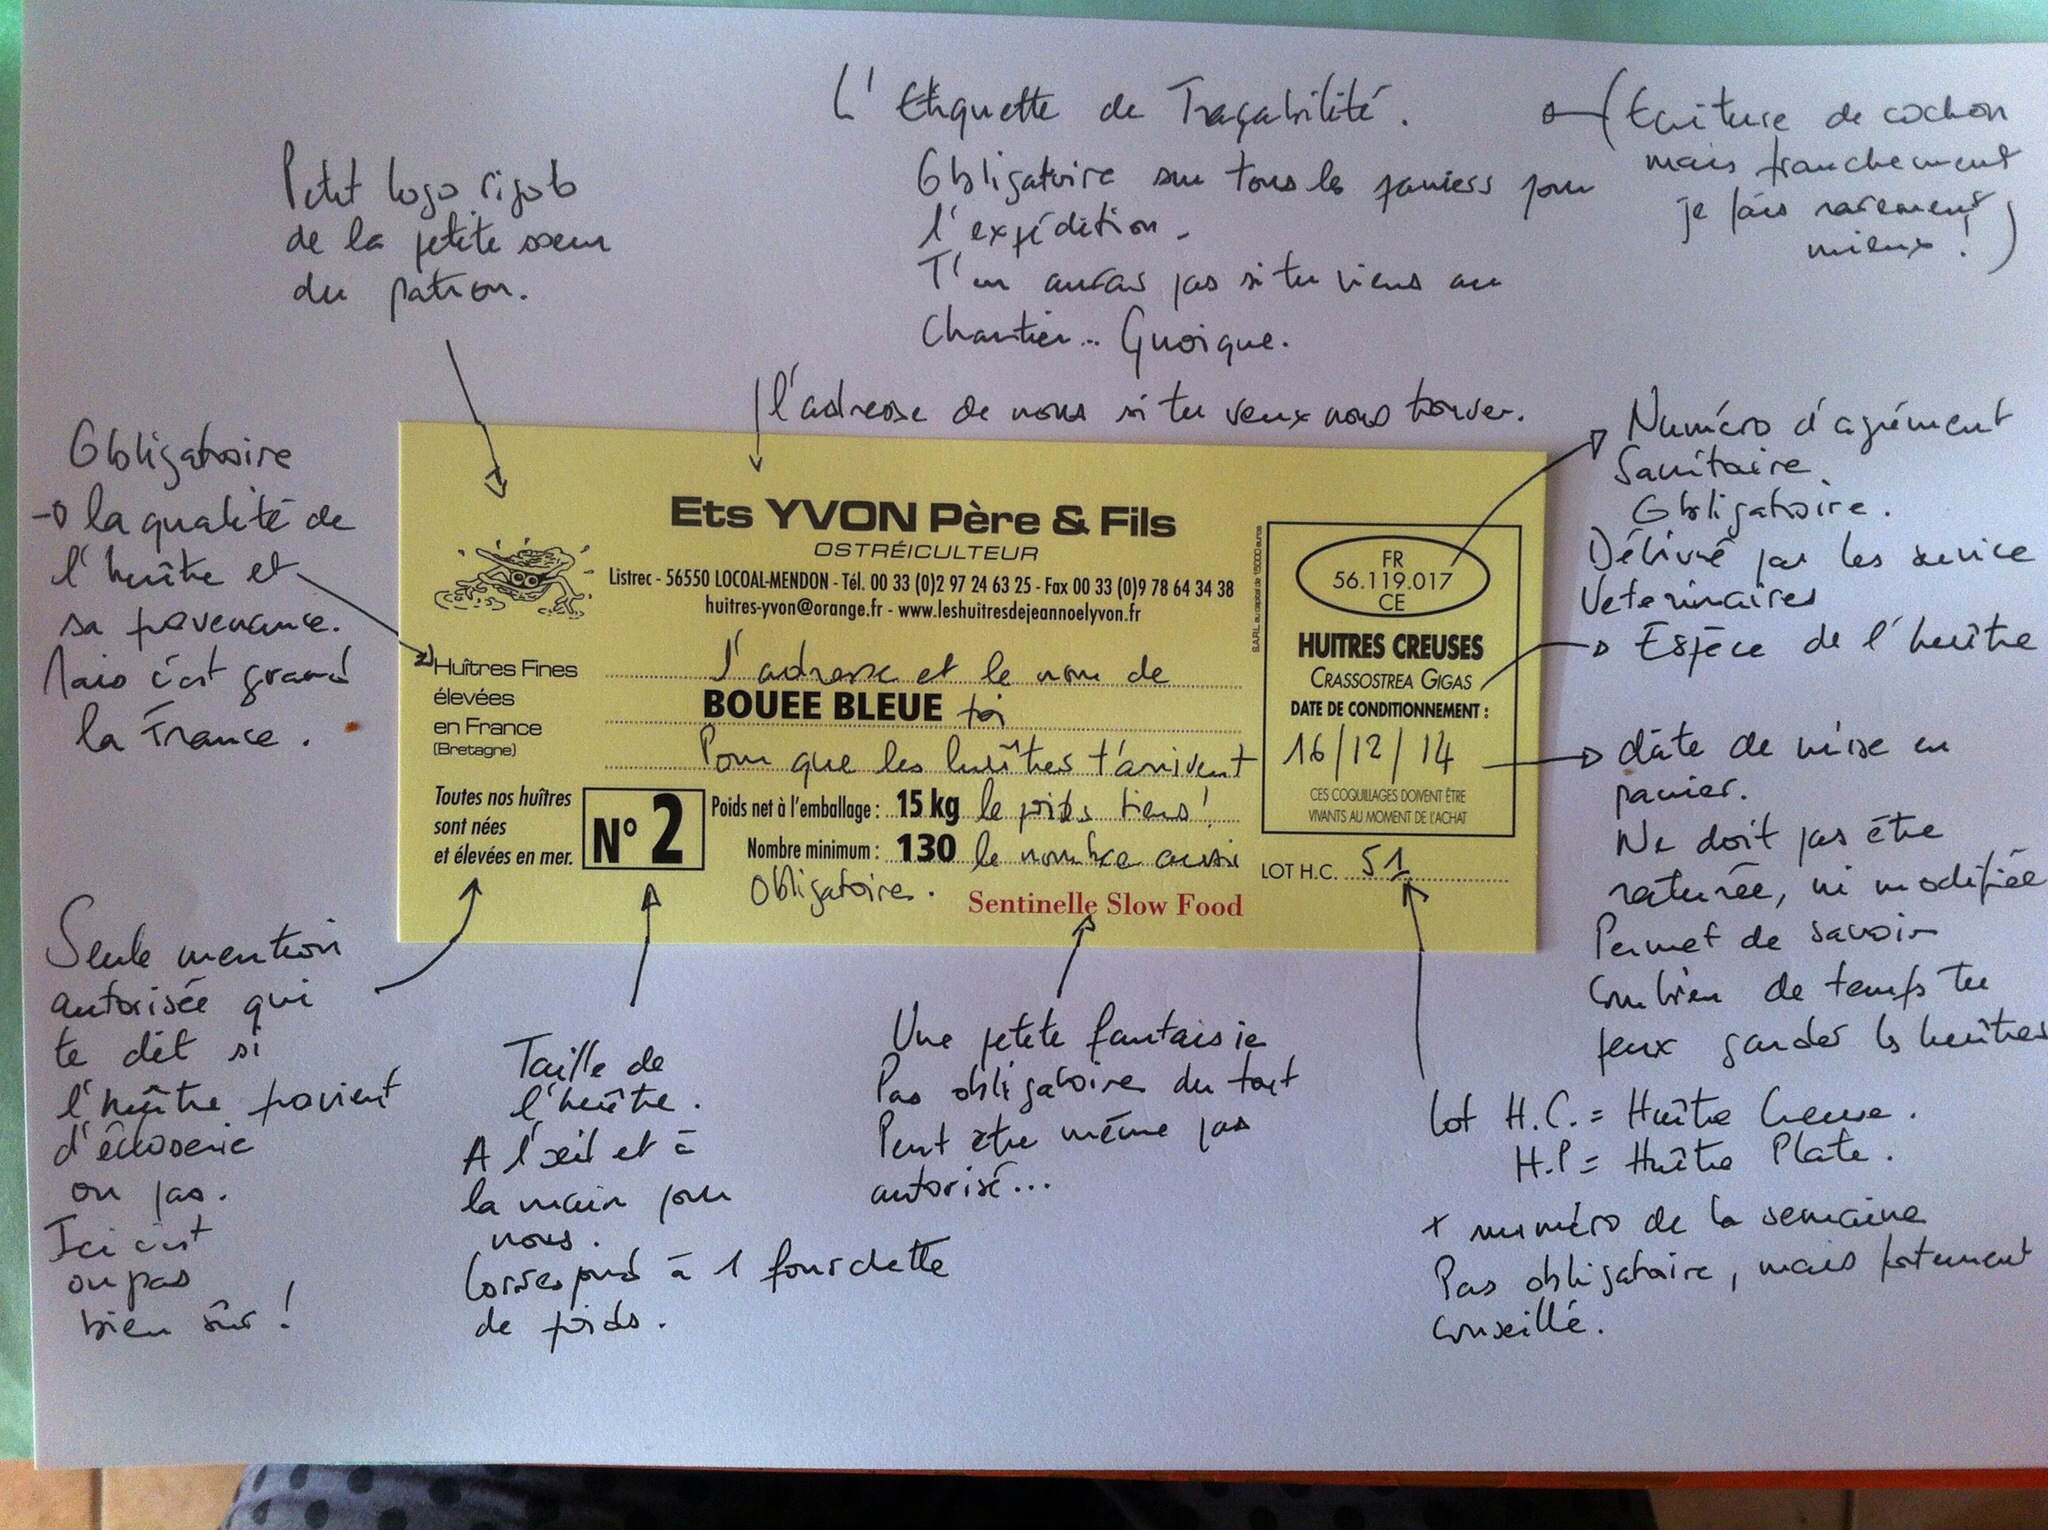 L'Etiquette de Traçabilité.
Obligatoire sur tous les paniers pour
l'expédition.
T'en auras pas si tu viens au
Chantier... Quoique.
(Ecriture de cochon
mais franchement
je fais rarement
mieux!)
Petit logo rigolo
de la petite soeur
du patron.
l'adresse de nous si tu veux nous trouver.
Obligatoire
la qualité de
l'huître et
sa provenance.
Mais c'est grand
la France.
Ets YVON Père & Fils
OSTRÉICULTEUR
Listrec - 56550 LOCOAL-MENDON - Tél. 00 33 (0)2 97 24 63 25 - Fax 00 33 (0)9 78 64 34 38
huitres-yvon@orange.fr - www.leshuitresdejeannoelyvon.fr
S.A.R.L. au capital de 15000 euros
Huîtres Fines
élevées
en France
(Bretagne)
l'adresse et le nom de
BOUEE BLEUE toi
Pour que les huîtres t'arrivent
Toutes nos huîtres
sont nées
et élevées en mer.
N° 2
Poids net à l'emballage : 15 kg le poids tiens!
Nombre minimum : 130 le nombre aussi
Obligatoire.
Sentinelle Slow Food
FR
56.119.017
CE
HUITRES CREUSES
CRASSOSTREA GIGAS
DATE DE CONDITIONNEMENT :
16/12/14
CES COQUILLAGES DOIVENT ÊTRE
VIVANTS AU MOMENT DE L'ACHAT
LOT H.C. 51
Numéro d'agrément
Sanitaire
Obligatoire.
Délivré par les service
Veterinaires
Espèce de l'huître
date de mise en
panier.
Ne doit pas être
raturée, ni modifiée
Permet de savoir
Combien de temps tu
peux garder les huîtres
Seule mention
autorisée qui
te dit si
l'huître provient
d'écloserie
ou pas.
Ici c'est
ou pas
bien sûr!
Taille de
l'huître.
A l'oeil et à
la main pour
nous.
Correspond à 1 fourchette
de poids.
Une petite fantaisie
Pas obligatoire du tout
Peut être même pas
autorisé...
Lot H.C. = Huître Creuse.
H.P = Huître Plate.
+ numéro de la semaine
Pas obligatoire, mais fortement
conseillé.